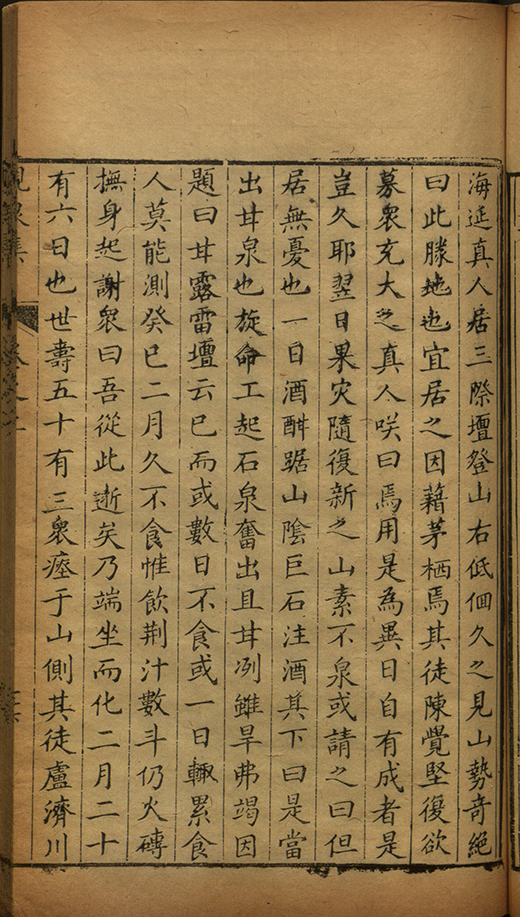 海延真人居三際壇登山右低佪久之見山勢奇絶
曰此勝地也宜居之因藉茅栖焉其徒陳覺堅復欲
募衆充大之真人咲曰焉用是為異日自有成者是
豈久耶翌日果灾隨復新之山素不泉或請之曰但
居無憂也一日酒酣踞山陰巨石注酒其下曰是當
出甘泉也旋命工起石泉奮出且甘冽雖旱弗竭因
題曰甘露雷壇云已而或數日不食或一日輙累食
人莫能測癸巳二月久不食惟飲荆汁數斗仍火磚
撫身起謝衆曰吾從此逝矣乃端坐而化二月二十
有六日也世壽五十有三衆瘞于山側其徒盧濟川